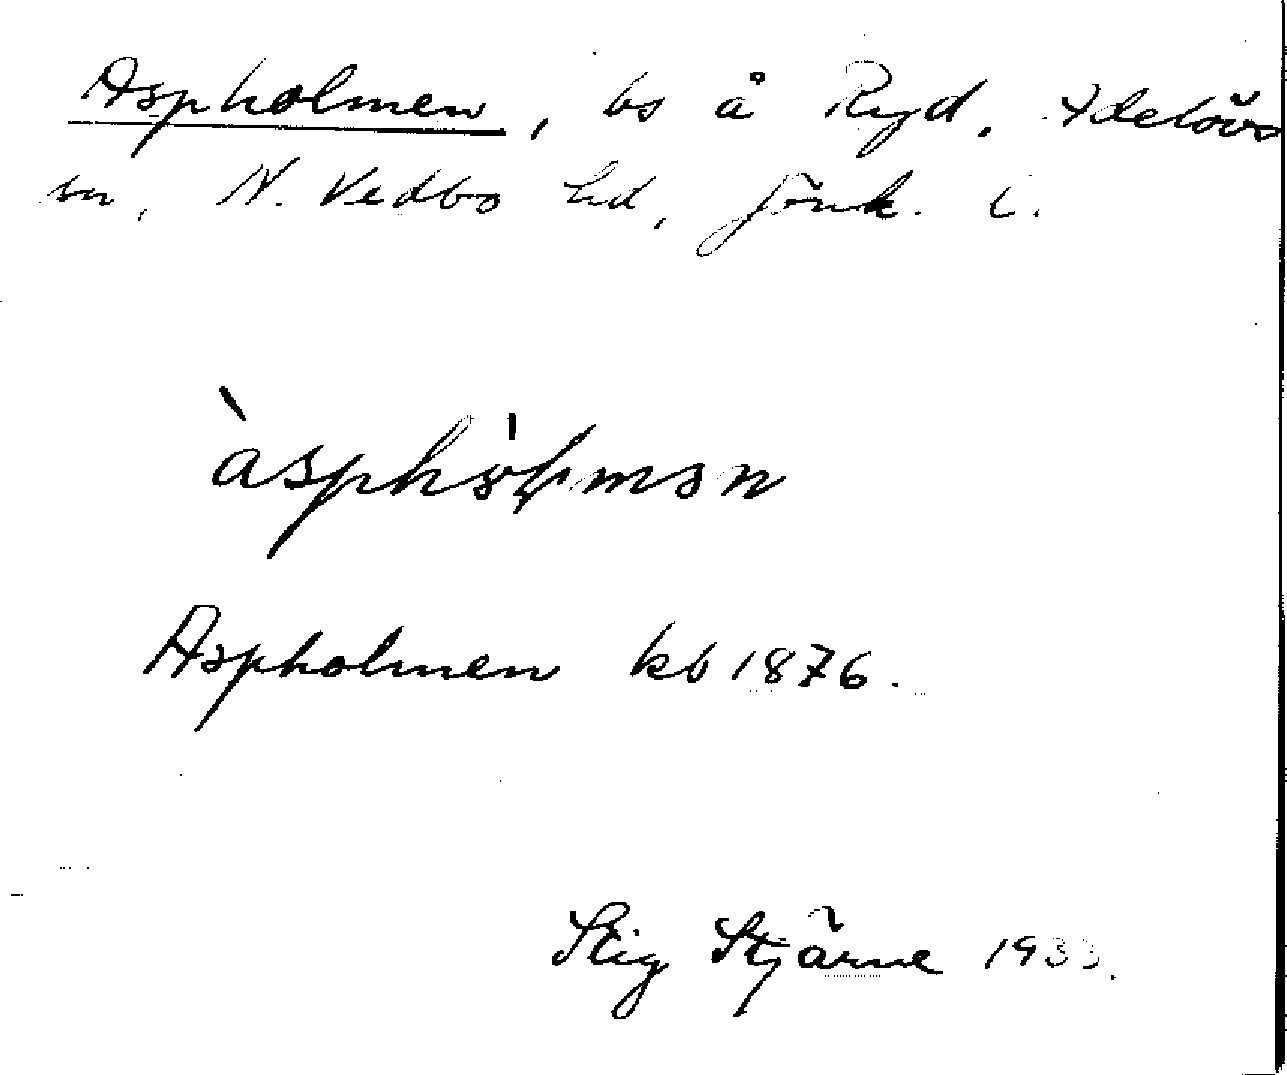 Aspholmen, bs å Ryd, Adelövs
sn, N. Vedbo hd, Jönk. l.
Aspholmen kb 1876.
Stig Stjärne 1933.